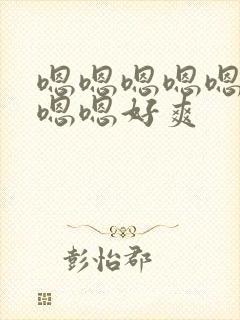 嗯嗯嗯嗯嗯
嗯嗯好爽
彭怡郡